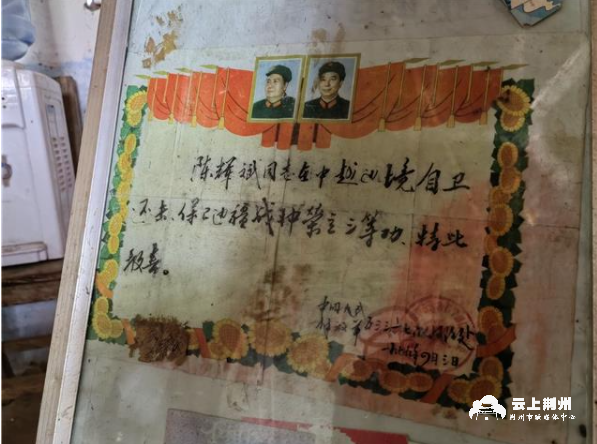 陈辉斌同志在中越边境自卫
还击、保卫边疆战中荣立三等功、特此
报喜。
中国人民
解放军
四月三日
云上荆州
荆州市融媒体中心